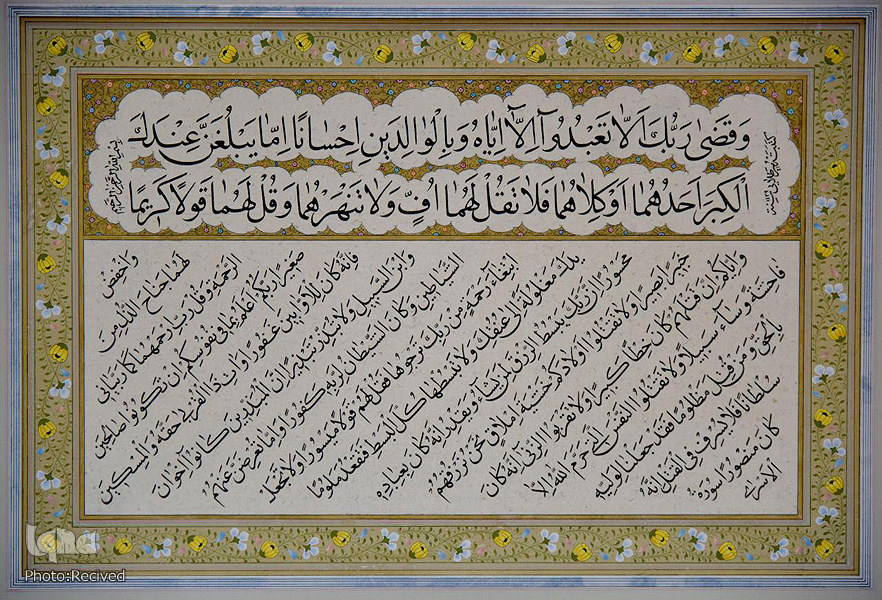 بسم الله الرحمن الرحيم
وَقَضىٰ رَبُّكَ اَلّا تَعْبُدُوا اِلّا اِيّاهُ وَبِالْوالِدَيْنِ اِحْسانًا اِمّا يَبْلُغَنَّ عِنْدَكَ
الْكِبَرَ اَحَدُهُما اَوْ كِلاهُما فَلا تَقُلْ لَهُما اُفٍّ وَلا تَنْهَرْهُما وَقُلْ لَهُما قَوْلًا كَريمًا
وَاخفِض
لَهُما جَناحَ الذُّلِّ مِنَ
الرَّحمَةِ وَقُل رَبِّ ارحَمهُما كَما رَبَّياني
صَغيرًا رَبُّكُم اَعلَمُ بِما في نُفوسِكُم اِن تَكونوا صالِحينَ
فَاِنَّهُ كانَ لِلاَوّابينَ غَفورًا وَآتِ ذَا القُربىٰ حَقَّهُ وَالمِسكينَ
وَابنَ السَّبيلِ وَلا تُبَذِّر تَبذيرًا اِنَّ المُبَذِّرينَ كانوا اِخوانَ
الشَّياطينِ وَكانَ الشَّيطانُ لِرَبِّهِ كَفورًا وَاِمّا تُعرِضَنَّ عَنهُمُ
ابتِغاءَ رَحمَةٍ مِن رَبِّكَ تَرجوها فَقُل لَهُم قَولًا مَيسورًا وَلا تَجعَل
يَدَكَ مَغلولَةً اِلىٰ عُنُقِكَ وَلا تَبسُطها كُلَّ البَسطِ فَتَقعُدَ مَلومًا
مَحسورًا اِنَّ رَبَّكَ يَبسُطُ الرِّزقَ لِمَن يَشاءُ وَيَقدِرُ اِنَّهُ كانَ بِعِبادِهِ
خَبيرًا بَصيرًا وَلا تَقتُلوا اَولادَكُم خَشيَةَ اِملاقٍ نَحنُ نَرزُقُهُم
وَاِيّاكُم اِنَّ قَتلَهُم كانَ خِطئًا كَبيرًا وَلا تَقرَبُوا الزِّنىٰ اِنَّهُ كانَ
فاحِشَةً وَساءَ سَبيلًا وَلا تَقتُلُوا النَّفسَ الَّتي حَرَّمَ اللهُ اِلّا
بِالحَقِّ وَمَن قُتِلَ مَظلومًا فَقَد جَعَلنا لِوَلِيِّهِ
سُلطانًا فَلا يُسرِف فِي القَتلِ اِنَّهُ
كانَ مَنصورًا سورة
الاسراء
Iqna
Photo:Recived